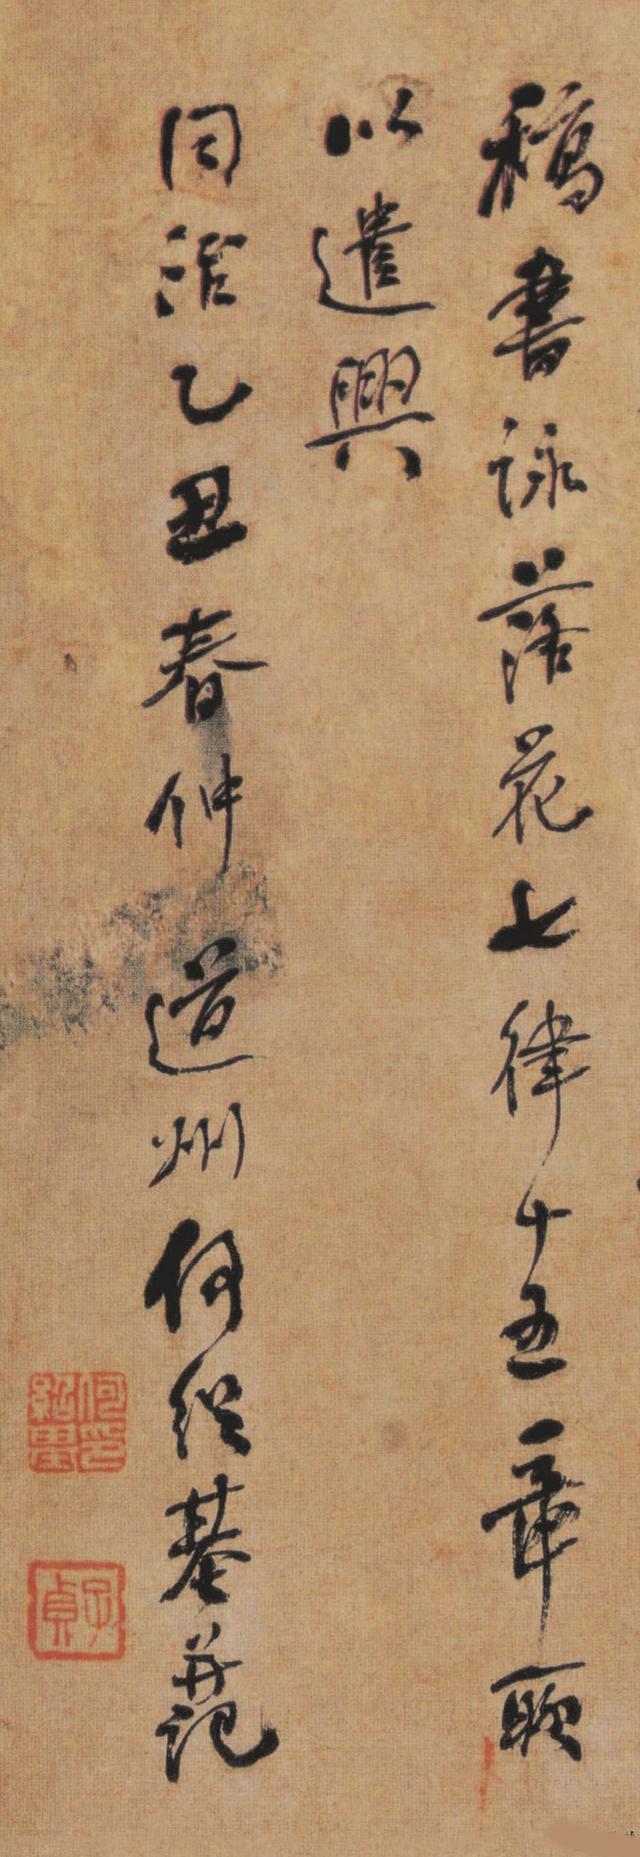 稿書詠落花七律十五章聊
以遣興
同治乙丑春仲道州何紹基并記
何紹基印
子貞